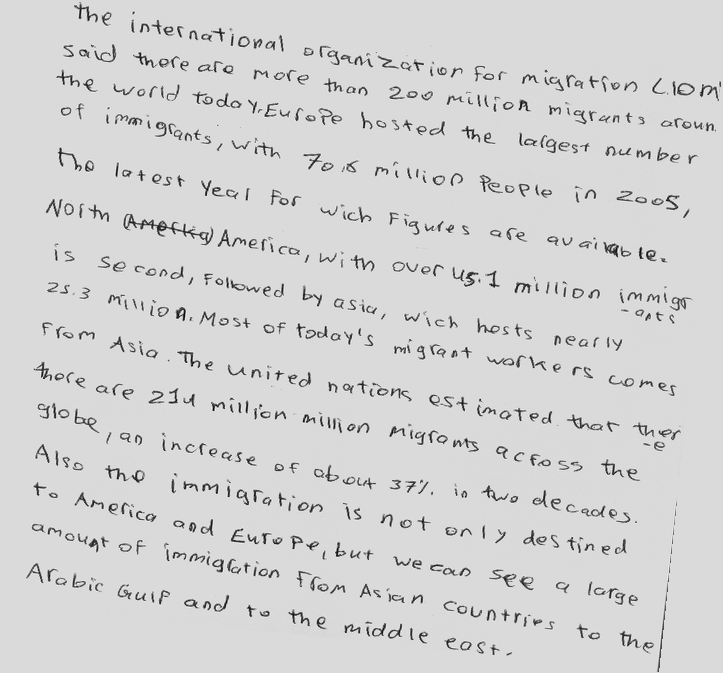 the international organization for migration (IOM
said there are more than 200 million migrants aroun
the world today, Europe hosted the largest number
of immigrants, with 70.6 million People in 2005,
the latest year for wich Figures are available.
North (Amerkia) America, with over 45.1 million immigr
-ants
is second, Followed by asia, wich hosts nearly
25.3 million. Most of today's migrant workers comes
from Asia. The united nations estimated that ther
-e
there are 214 million million migrants across the
globe, an increase of about 37% in two decades.
Also the immigration is not only destined
to America and Europe, but we can see a large
amount of immigration from Asian countries to the
Arabic Gulf and to the middle east.